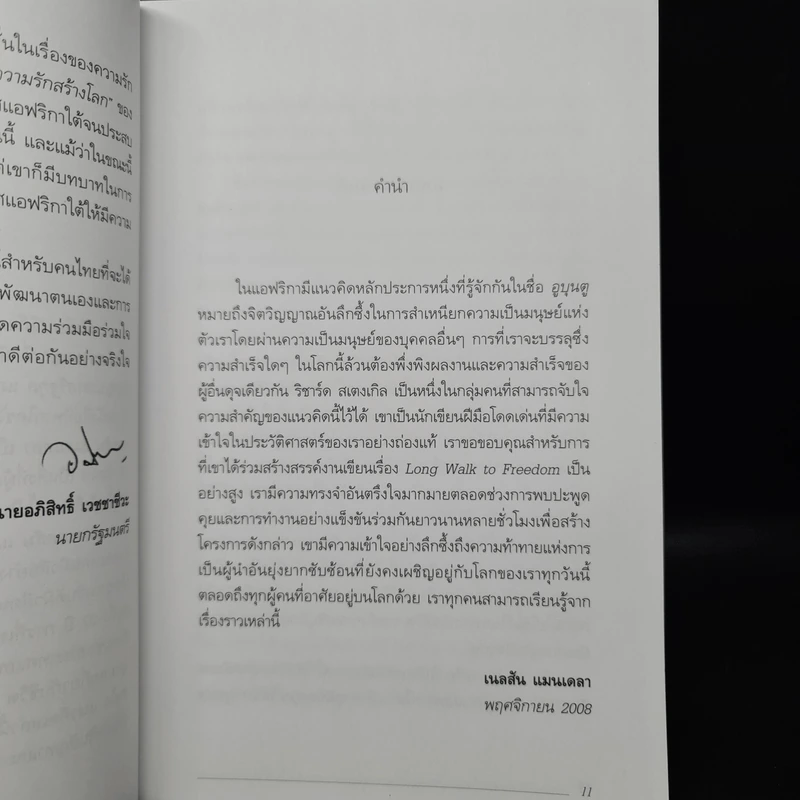 ในเรื่องของความรัก
ความรักสร้างโลก" ของ
แอฟริกาใต้จนประสบ
นี้ และแม้ว่าในขณะนี้
เขาก็มีบทบาทในการ
แอฟริกาใต้ให้มีความ
สำหรับคนไทยที่จะได้
พัฒนาตนเองและการ
ความร่วมมือร่วมใจ
ดีต่อกันอย่างจริงใจ
นายอภิสิทธิ์ เวชชาชีวะ
นายกรัฐมนตรี
คำนำ
ในแอฟริกามีแนวคิดหลักประการหนึ่งที่รู้จักกันในชื่อ อูบุนตู
หมายถึงจิตวิญญาณอันลึกซึ้งในการสำเหนียกความเป็นมนุษย์แห่ง
ตัวเราโดยผ่านความเป็นมนุษย์ของบุคคลอื่นๆ การที่เราจะบรรลุซึ่ง
ความสำเร็จใดๆ ในโลกนี้ล้วนต้องพึ่งพิงผลงานและความสำเร็จของ
ผู้อื่นดุจเดียวกัน ริชาร์ด สเตงเกิล เป็นหนึ่งในกลุ่มคนที่สามารถจับใจ
ความสำคัญของแนวคิดนี้ไว้ได้ เขาเป็นนักเขียนฝีมือโดดเด่นที่มีความ
เข้าใจในประวัติศาสตร์ของเราอย่างถ่องแท้ เราขอขอบคุณสำหรับการ
ที่เขาได้ร่วมสร้างสรรค์งานเขียนเรื่อง Long Walk to Freedom เป็น
อย่างสูง เรามีความทรงจำอันตรึงใจมากมายตลอดช่วงการพบปะพูด
คุยและการทำงานอย่างแข็งขันร่วมกันยาวนานหลายชั่วโมงเพื่อสร้าง
โครงการดังกล่าว เขามีความเข้าใจอย่างลึกซึ้งถึงความท้าทายแห่งการ
เป็นผู้นำอันยุ่งยากซับซ้อนที่ยังคงเผชิญอยู่กับโลกของเราทุกวันนี้
ตลอดถึงทุกผู้คนที่อาศัยอยู่บนโลกด้วย เราทุกคนสามารถเรียนรู้จาก
เรื่องราวเหล่านี้
เนลสัน แมนเดลา
พฤศจิกายน 2008
11